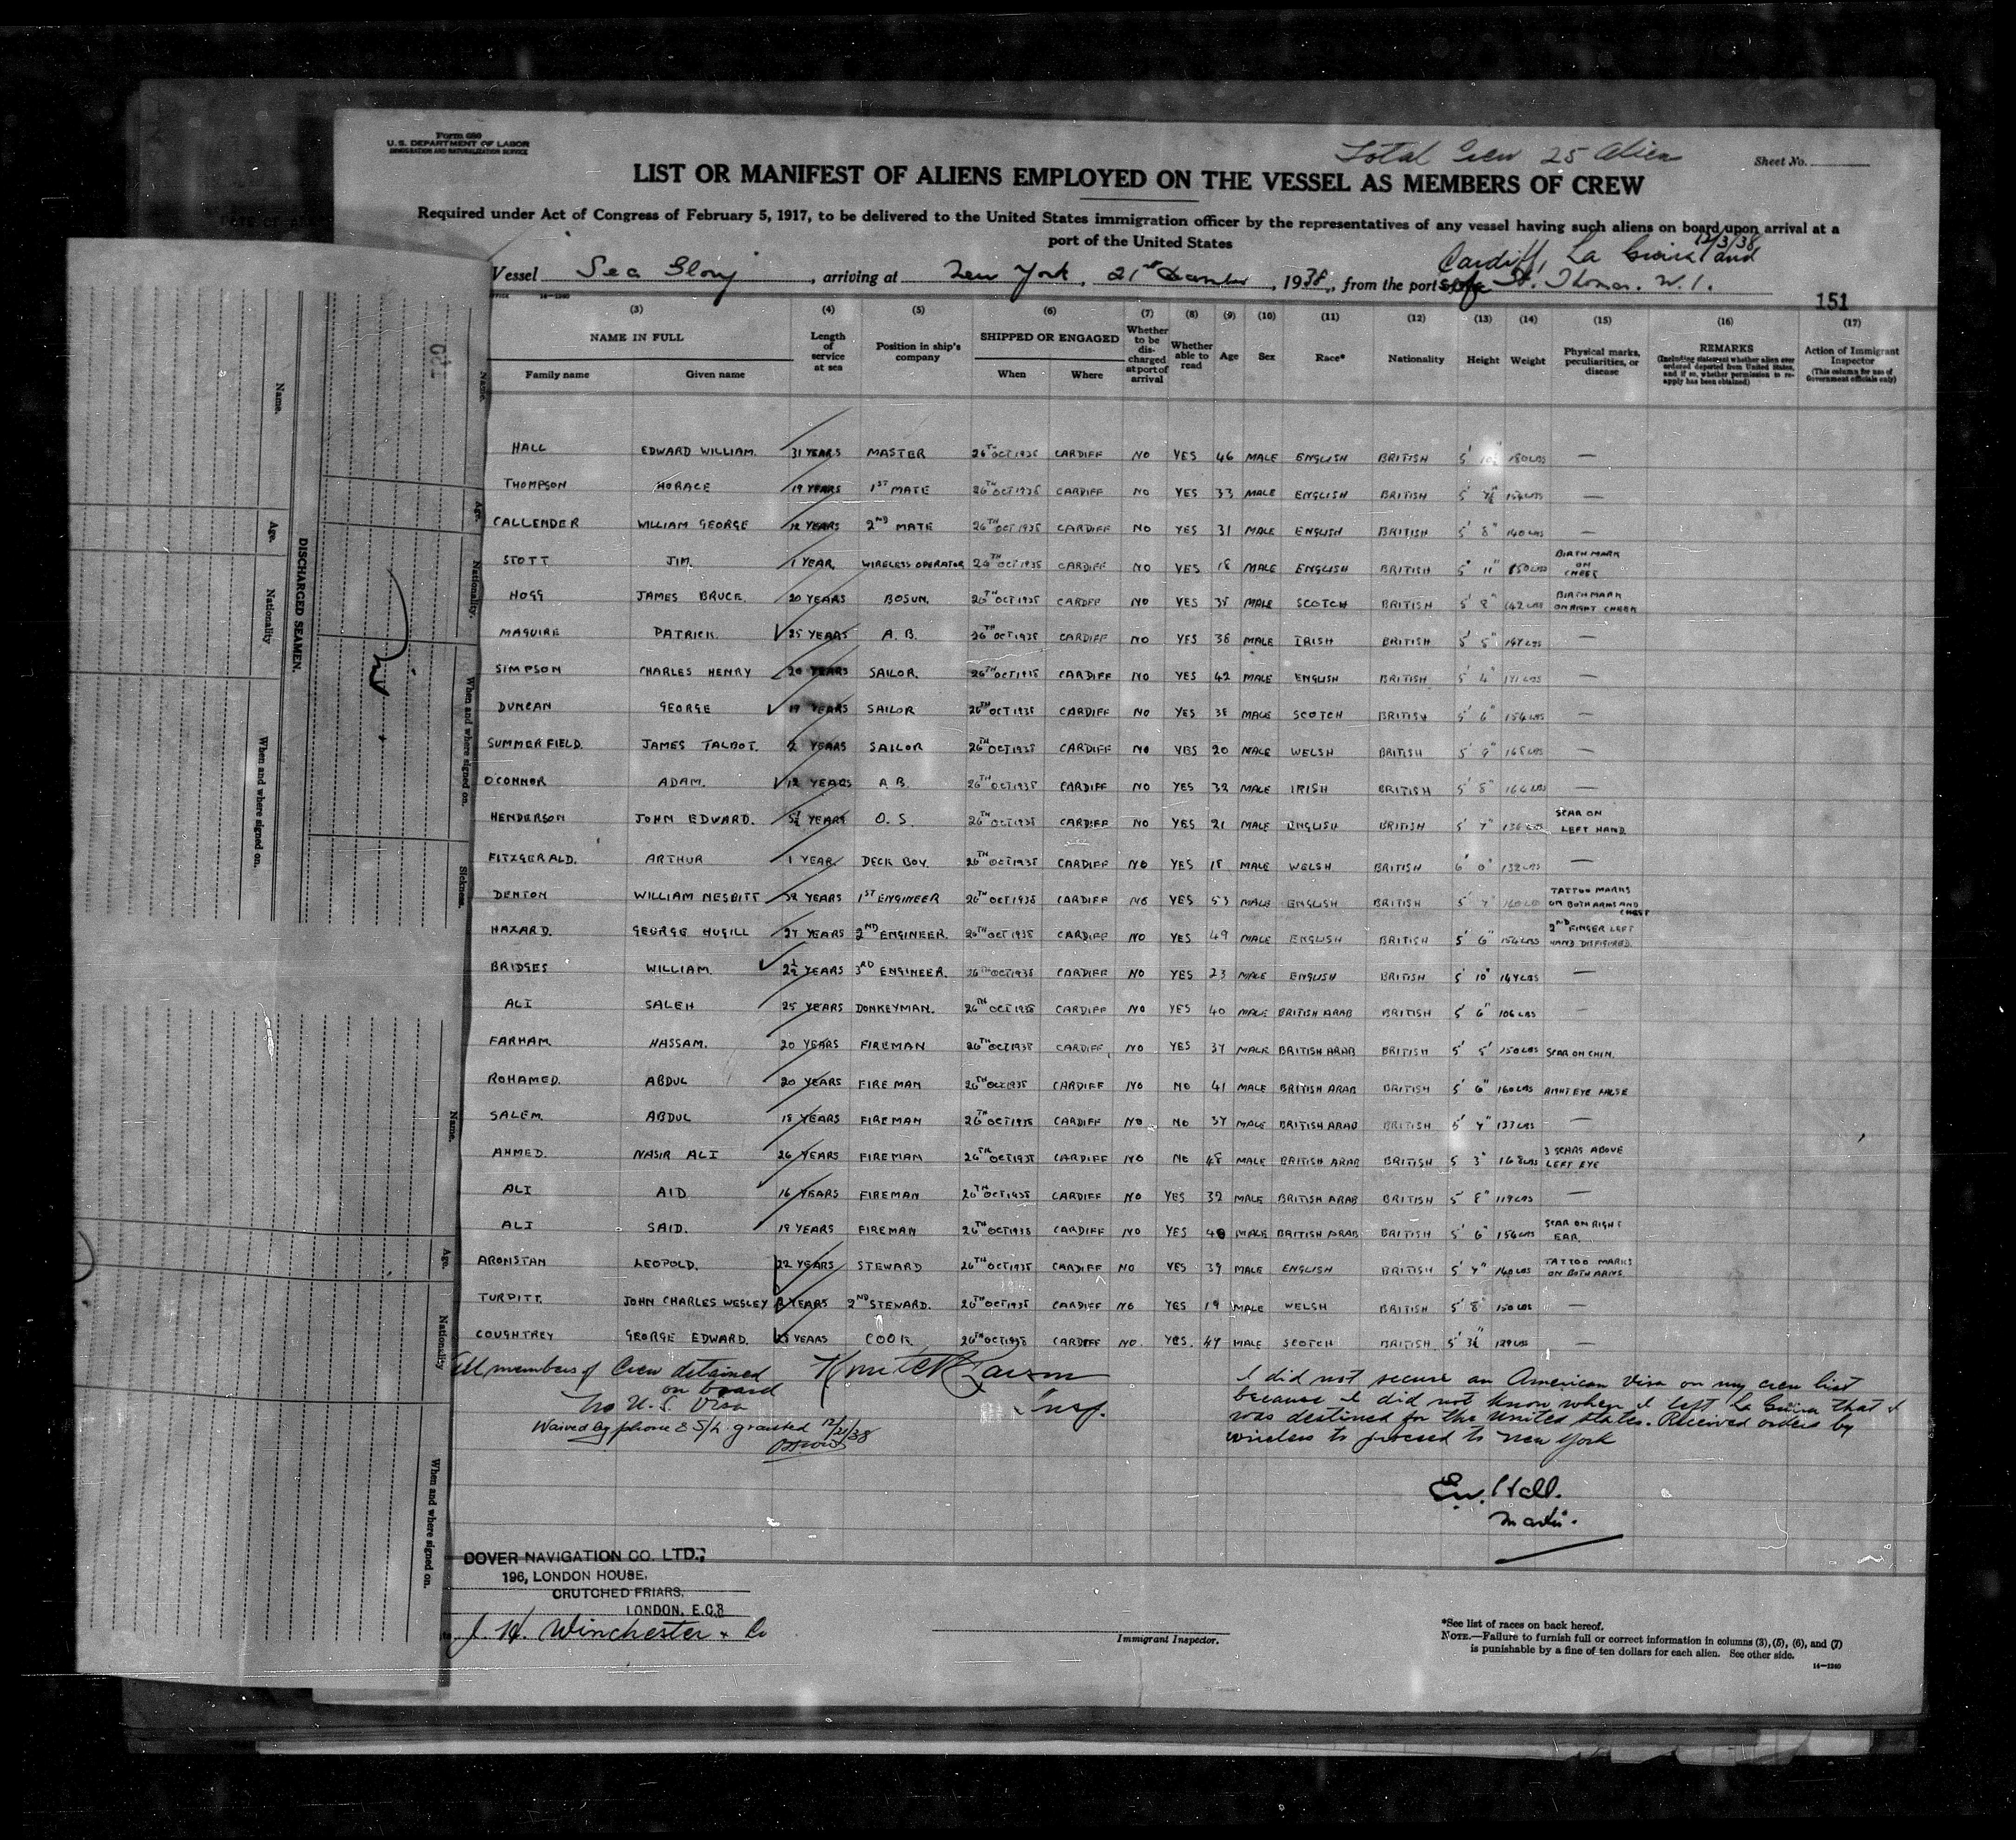 Form 680
U. S. DEPARTMENT OF LABOR
IMMIGRATION AND NATURALIZATION SERVICE
Total Crew 25 Alien
Sheet No.
LIST OR MANIFEST OF ALIENS EMPLOYED ON THE VESSEL AS MEMBERS OF CREW
Required under Act of Congress of February 5, 1917, to be delivered to the United States immigration officer by the representatives of any vessel having such aliens on board upon arrival at a
port of the United States
12/3/38
Cardiff, La Guaira and
Vessel Sea Glory, arriving at New York, 21st December, 1938, from the ports of St. Thomas. W. I.
151
(3) (4) (5) (6) (7) (8) (9) (10) (11) (12) (13) (14) (15) (16) (17)
NAME IN FULL
Family name Given name
Length of service at sea
Position in ship's company
SHIPPED OR ENGAGED
When Where
Whether to be discharged at port of arrival
Whether able to read
Age
Sex
Race*
Nationality
Height
Weight
Physical marks, peculiarities, or disease
REMARKS
(Including statement whether alien ever ordered deported from United States, and if so, whether permission to reapply has been obtained)
Action of Immigrant Inspector
(This column for use of Government officials only)
HALL EDWARD WILLIAM. 31 YEARS MASTER 26TH OCT 1938 CARDIFF NO YES 46 MALE ENGLISH BRITISH 5' 180 LBS —
THOMPSON HORACE 19 YEARS 1ST MATE 26TH OCT 1938 CARDIFF NO YES 33 MALE ENGLISH BRITISH 5' 154 LBS —
CALLENDER WILLIAM GEORGE 12 YEARS 2ND MATE 26TH OCT 1938 CARDIFF NO YES 31 MALE ENGLISH BRITISH 5' 8" 140 LBS —
STOTT JIM. 1 YEAR. WIRELESS OPERATOR 26TH OCT 1938 CARDIFF NO YES 18 MALE ENGLISH BRITISH 5' 11" 150 LBS BIRTH MARK ON CHEEK
HOGG JAMES BRUCE. 20 YEARS BOSUN. 26TH OCT 1938 CARDIFF NO YES 35 MALE SCOTCH BRITISH 5' 8" 142 LBS BIRTH MARK ON RIGHT CHEEK
MAGUIRE PATRICK 25 YEARS A. B. 26TH OCT 1938 CARDIFF NO YES 38 MALE IRISH BRITISH 5' 5" 147 LBS —
SIMPSON CHARLES HENRY 20 YEARS SAILOR. 26TH OCT 1938 CARDIFF NO YES 42 MALE ENGLISH BRITISH 5' 4" 171 LBS —
DUNCAN GEORGE 19 YEARS SAILOR 26TH OCT 1938 CARDIFF NO YES 38 MALE SCOTCH BRITISH 5' 6" 154 LBS —
SUMMERFIELD. JAMES TALBOT. 2 YEARS SAILOR 26TH OCT 1938 CARDIFF NO YES 20 MALE WELSH BRITISH 5' 9" 165 LBS —
O'CONNOR ADAM. 12 YEARS A B. 26TH OCT 1938 CARDIFF NO YES 32 MALE IRISH BRITISH 5' 8" 166 LBS —
HENDERSON JOHN EDWARD. 5½ YEARS O. S. 26TH OCT 1938 CARDIFF NO YES 21 MALE ENGLISH BRITISH 5' 7" 136 LBS SCAR ON LEFT HAND
FITZGERALD. ARTHUR 1 YEAR DECK BOY. 26TH OCT 1938 CARDIFF NO YES 18 MALE WELSH BRITISH 6' 0" 132 LBS —
DENTON WILLIAM NESBITT 32 YEARS 1ST ENGINEER 26TH OCT 1938 CARDIFF NO YES 53 MALE ENGLISH BRITISH 5' 7" 160 LBS TATTOO MARKS ON BOTH ARMS AND CHEST
HAZARD. GEORGE HUGILL 27 YEARS 2ND ENGINEER. 26TH OCT 1938 CARDIFF NO YES 49 MALE ENGLISH BRITISH 5' 6" 154 LBS 2ND FINGER LEFT HAND DISFIGURED.
BRIDGES WILLIAM. 2½ YEARS 3RD ENGINEER. 26TH OCT 1938 CARDIFF NO YES 23 MALE ENGLISH BRITISH 5' 10" 147 LBS —
ALI SALEH 25 YEARS DONKEYMAN. 26TH OCT 1938 CARDIFF NO YES 40 MALE BRITISH ARAB BRITISH 5' 6" 106 LBS —
FARHAM. HASSAM. 20 YEARS FIREMAN 26TH OCT 1938 CARDIFF NO YES 37 MALE BRITISH ARAB BRITISH 5' 5" 150 LBS SCAR ON CHIN.
ROHAMED. ABDUL 20 YEARS FIREMAN 26TH OCT 1938 CARDIFF NO NO 41 MALE BRITISH ARAB BRITISH 5' 6" 160 LBS RIGHT EYE FALSE
SALEM. ABDUL 15 YEARS FIREMAN 26TH OCT 1938 CARDIFF NO NO 37 MALE BRITISH ARAB BRITISH 5' 4" 133 LBS —
AHMED. NASIR ALI 26 YEARS FIREMAN 26TH OCT 1938 CARDIFF NO NO 48 MALE BRITISH ARAB BRITISH 5' 3" 168 LBS 3 SCARS ABOVE LEFT EYE
ALI AID 16 YEARS FIREMAN 26TH OCT 1938 CARDIFF NO YES 39 MALE BRITISH ARAB BRITISH 5' 8" 119 LBS —
ALI SAID. 19 YEARS FIREMAN 26TH OCT 1938 CARDIFF NO YES 40 MALE BRITISH ARAB BRITISH 5' 6" 156 LBS SCAR ON RIGHT EAR.
ARONSTAN LEOPOLD. 22 YEARS STEWARD 26TH OCT 1938 CARDIFF NO YES 39 MALE ENGLISH BRITISH 5' 7" 140 LBS TATTOO MARKS ON BOTH ARMS.
TURPITT. JOHN CHARLES WESLEY YEARS 2ND STEWARD. 26TH OCT 1938 CARDIFF NO YES 19 MALE WELSH BRITISH 5' 8" 150 LBS —
COUGHTREY GEORGE EDWARD. 25 YEARS COOK. 26TH OCT 1938 CARDIFF NO. YES. 47 MALE SCOTCH BRITISH. 5' 3½" 129 LBS —
All members of Crew detained
on board
No U. S. Visa
Waived by phone & S/L granted 12/21/38
Insp.
I did not secure an American Visa on my crew list
because I did not know when I left La Guaira that I
was destined for the United States. Received orders by
wireless to proceed to New York
E.W. Hall.
Master.
DOVER NAVIGATION CO. LTD.,
196, LONDON HOUSE,
CRUTCHED FRIARS,
LONDON, E.C.3
J. H. Winchester & Co
Immigrant Inspector.
*See list of races on back hereof.
NOTE.—Failure to furnish full or correct information in columns (3), (5), (6), and (7)
is punishable by a fine of ten dollars for each alien. See other side.
14—1240
DISCHARGED SEAMEN.
Name.
Age.
Nationality
When and where signed on.
Name.
Age.
Nationality.
When and where signed on.
Sickness.
Name.
Age.
Nationality
When and where signed on.